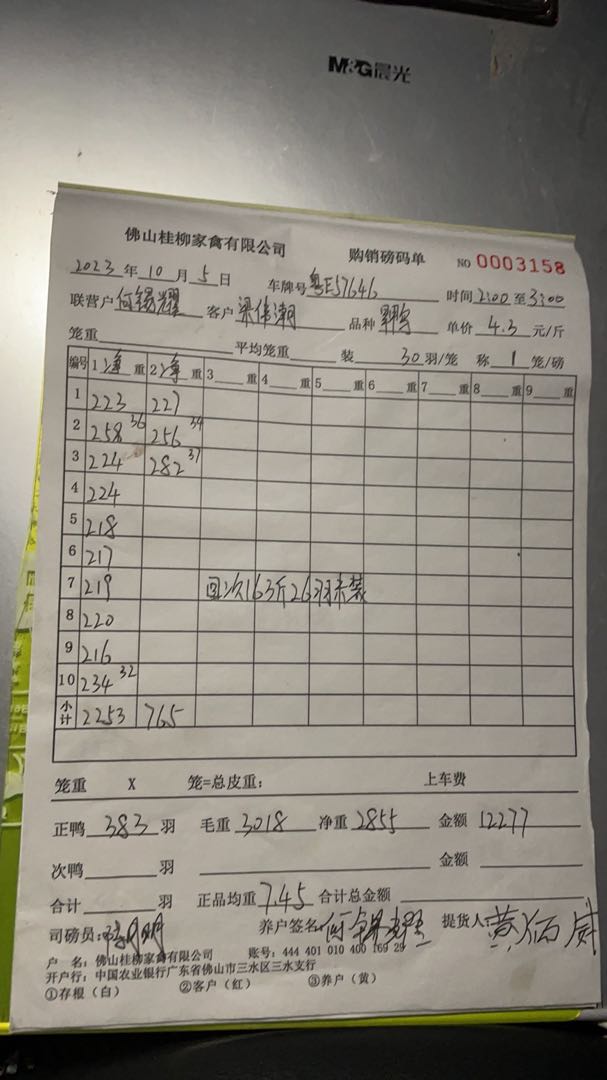 M&G晨光
佛山桂柳家禽有限公司 购销磅码单 NO 0003158
2023年10月5日 车牌号粤E57646 时间2:00至3:00
联营户何锡耀 客户梁伟潮 品种 单价4.3元/斤
笼重 平均笼重 装30羽/笼 称1笼/磅
编号 1净重 2净重 3重 4重 5重 6重 7重 8重 9重
1 223 227
2 258 36 256 34
3 224 282 37
4 224
5 218
6 217
7 219 回次163斤26羽未装
8 220
9 216
10 234 32
小计 2253 765
笼重 X 笼=总皮重： 上车费
正鸭383羽 毛重3018 净重2855 金额12277
次鸭羽 金额
合计羽 正品均重7.45 合计总金额
司磅员： 养户签名 提货人
户 名：佛山桂柳家禽有限公司 账号：444 401 010 400 169 29
开户行：中国农业银行广东省佛山市三水区三水支行
①存根（白） ②客户（红） ③养户（黄）